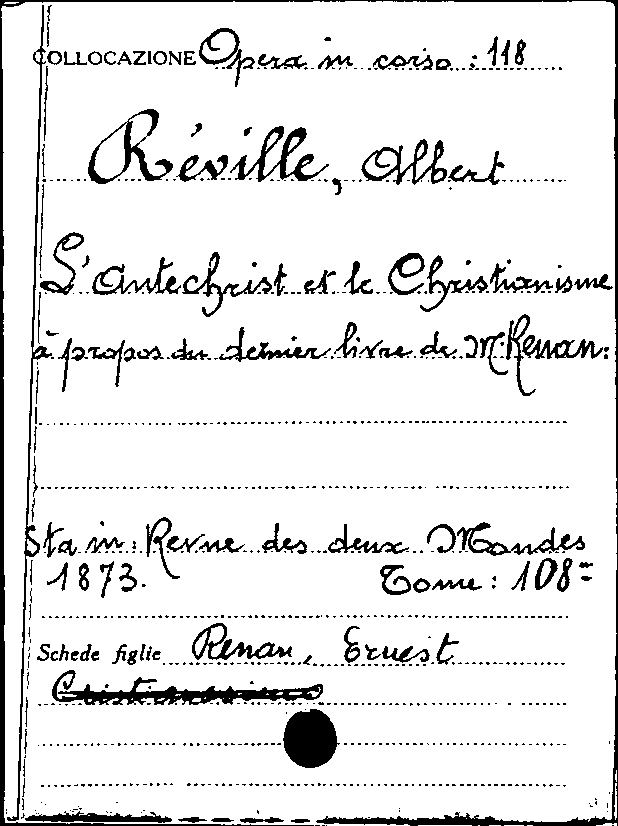 COLLOCAZIONE Opera in corso : 118
Réville, Albert
L'Antechrist et le Christianisme
à propos du dernier livre de Mr Renan:
Sta in: Revue des deux Mondes
1873. Tome: 108
Schede figlie Renan, Ernest